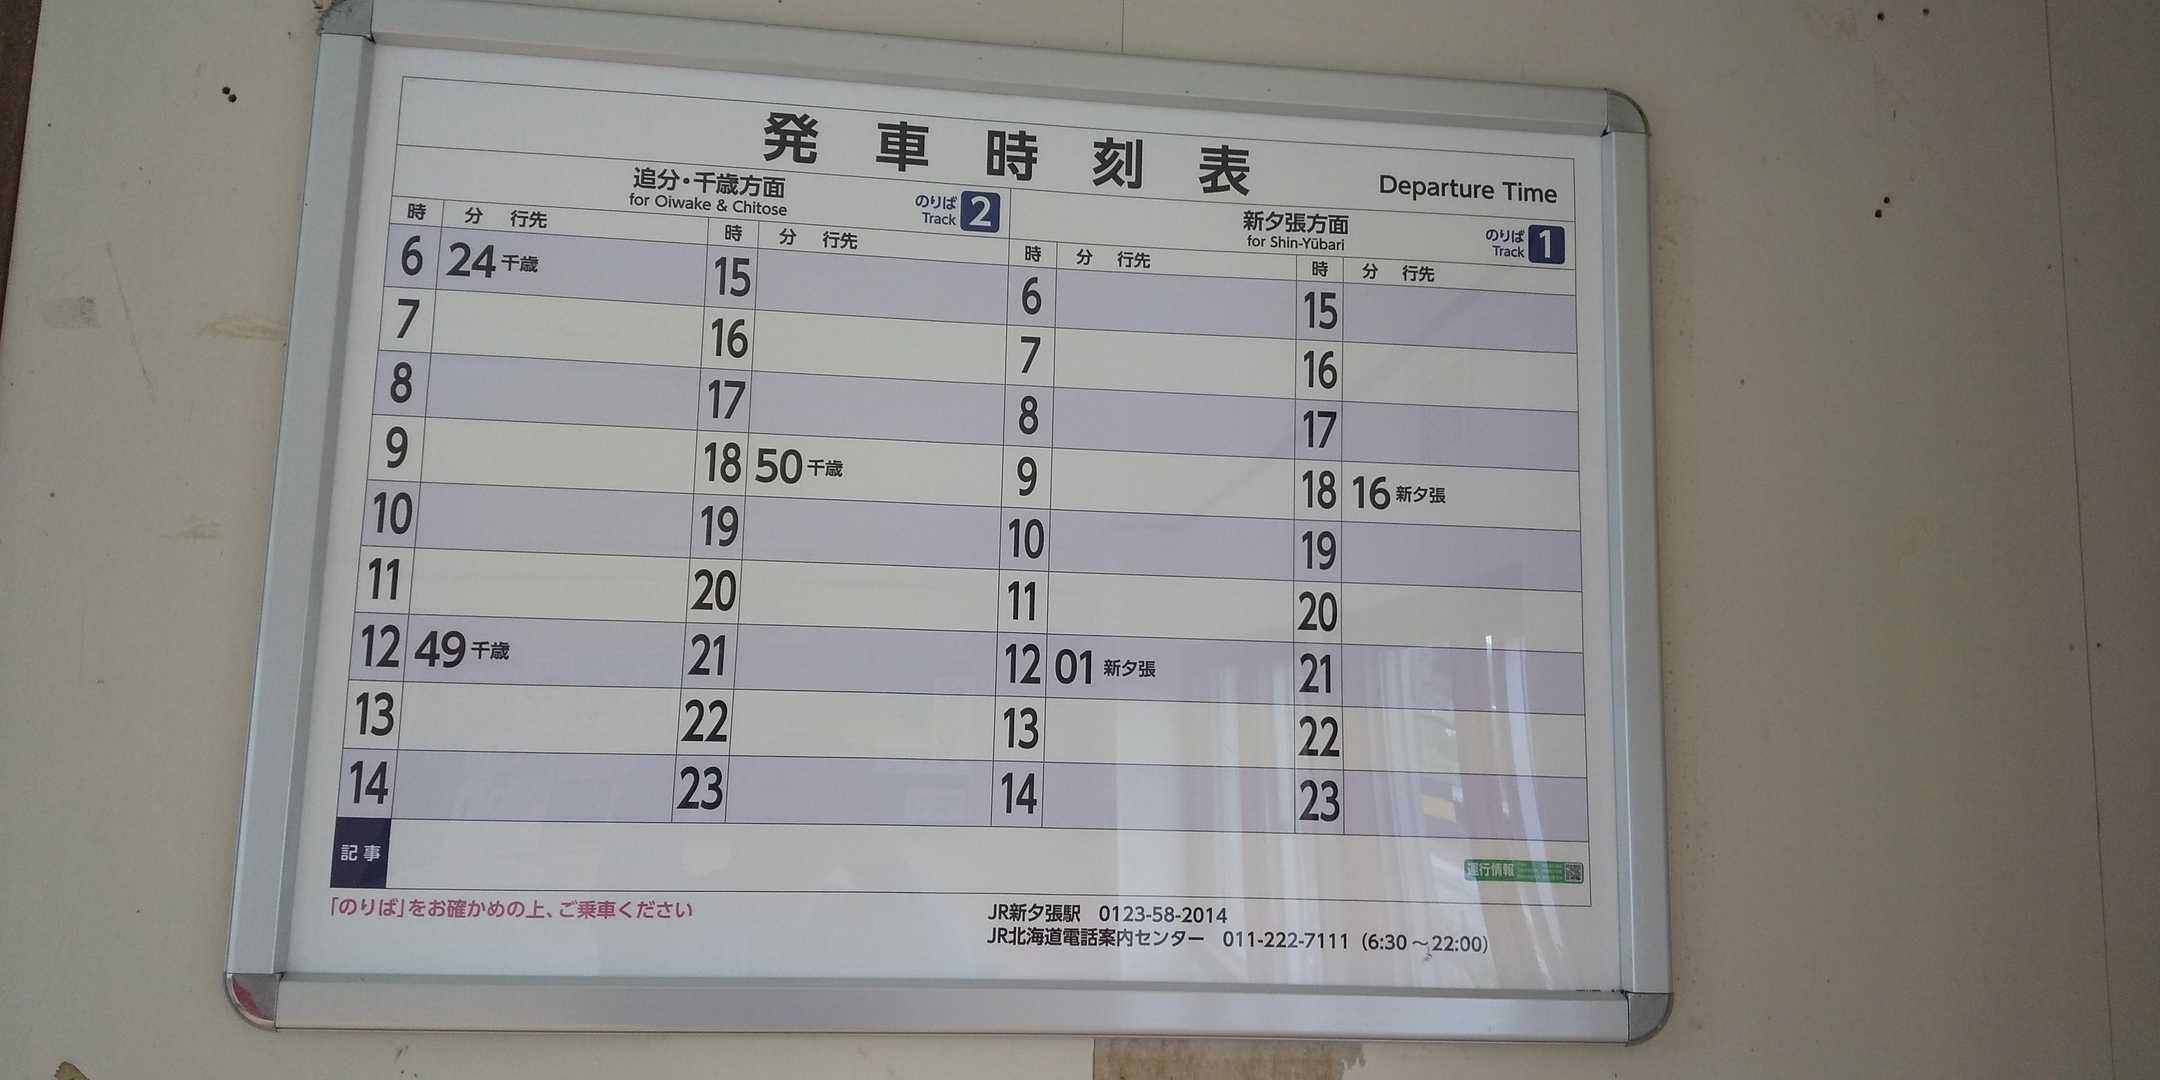 発車時刻表 Departure Time
追分・千歳方面
for Oiwake & Chitose
のりば
Track 2
時 分 行先 時 分 行先
6 24 千歳 15
7 16
8 17
9 18 50 千歳
10 19
11 20
12 49 千歳 21
13 22
14 23
新夕張方面
for Shin-Yūbari
のりば
Track 1
時 分 行先 時 分 行先
6 15
7 16
8 17
9 18 16 新夕張
10 19
11 20
12 01 新夕張 21
13 22
14 23
記事
運行情報
「のりば」をお確かめの上、ご乗車ください
JR新夕張駅 0123-58-2014
JR北海道電話案内センター 011-222-7111 (6:30～22:00)